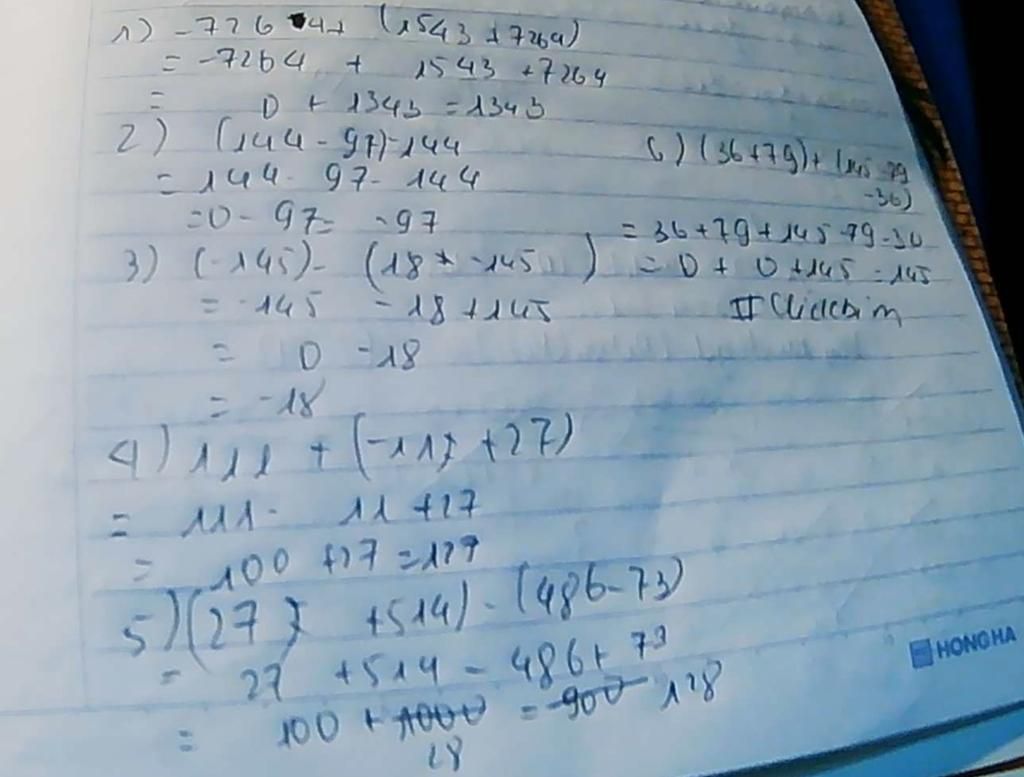 1) -7264+ (1543 +7264)
= -7264 + 1543 +7264
= 0 + 1343 = 1343
2) (144 - 97)-144
= 144 - 97 - 144
=0 - 97= -97
3) (-145) - (18 + -145)
= -145 -18 +145
= 0 -18
= -18
4) 111 + (-11 +27)
= 111 - 11 +27
= 100 +27 =127
5) (27 +514) - (486-73)
= 27 +514 - 486+ 73
= 100 + 28 = 128
6) (36+79)+ (145-79
-36)
= 36+79+145-79-36
= 0 + 0 +145 =145
HONG HA